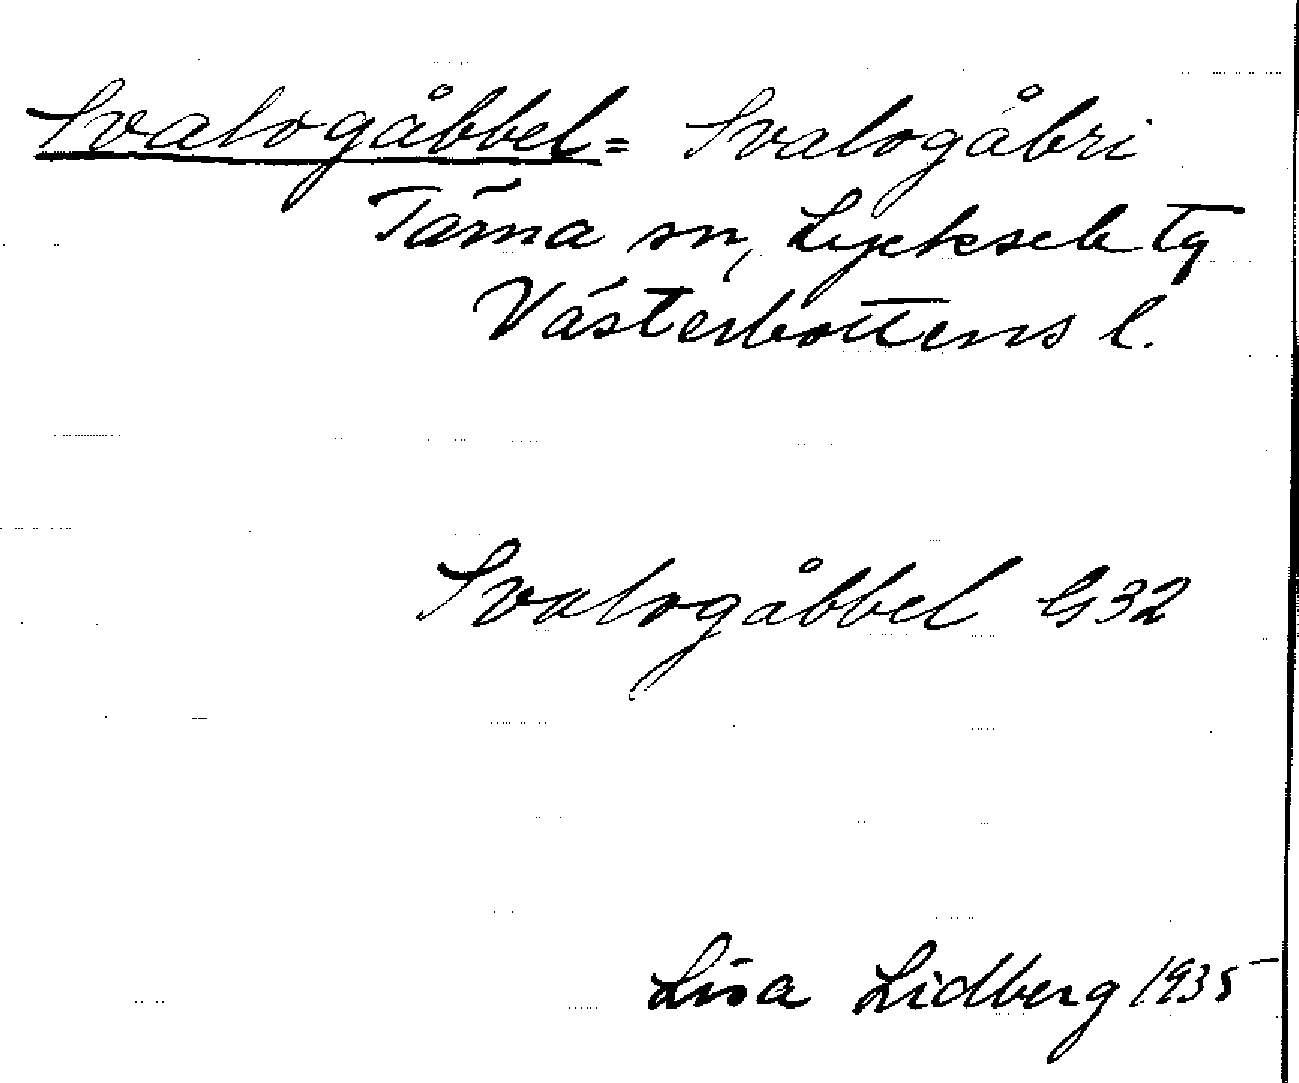 Svalogåbbel = Svalogåbri
Tärna sn, Lycksele tg
Västerbottens l.
Svalogåbbel G32
Lisa Lidberg 1935